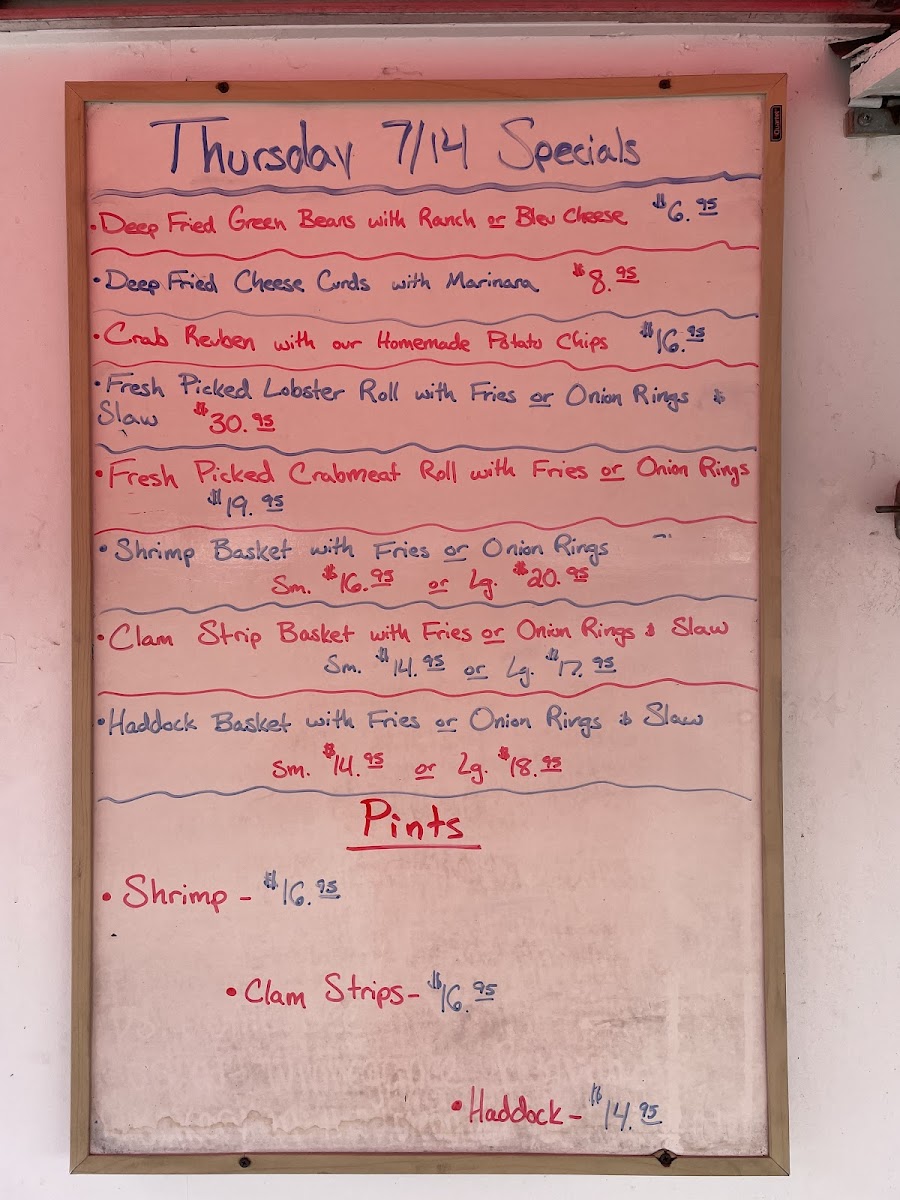 Thursday 7/14 Specials
• Deep Fried Green Beans with Ranch or Bleu Cheese $6.95
• Deep Fried Cheese Curds with Marinara $8.95
• Crab Reuben with our Homemade Potato Chips $16.95
• Fresh Picked Lobster Roll with Fries or Onion Rings &
Slaw $30.95
• Fresh Picked Crabmeat Roll with Fries or Onion Rings
$19.95
• Shrimp Basket with Fries or Onion Rings
Sm. $16.95 or Lg. $20.95
• Clam Strip Basket with Fries or Onion Rings & Slaw
Sm. $14.95 or Lg. $17.95
• Haddock Basket with Fries or Onion Rings & Slaw
Sm. $14.95 or Lg. $18.95
Pints
• Shrimp - $16.95
• Clam Strips - $16.95
• Haddock - $14.95
Quartet